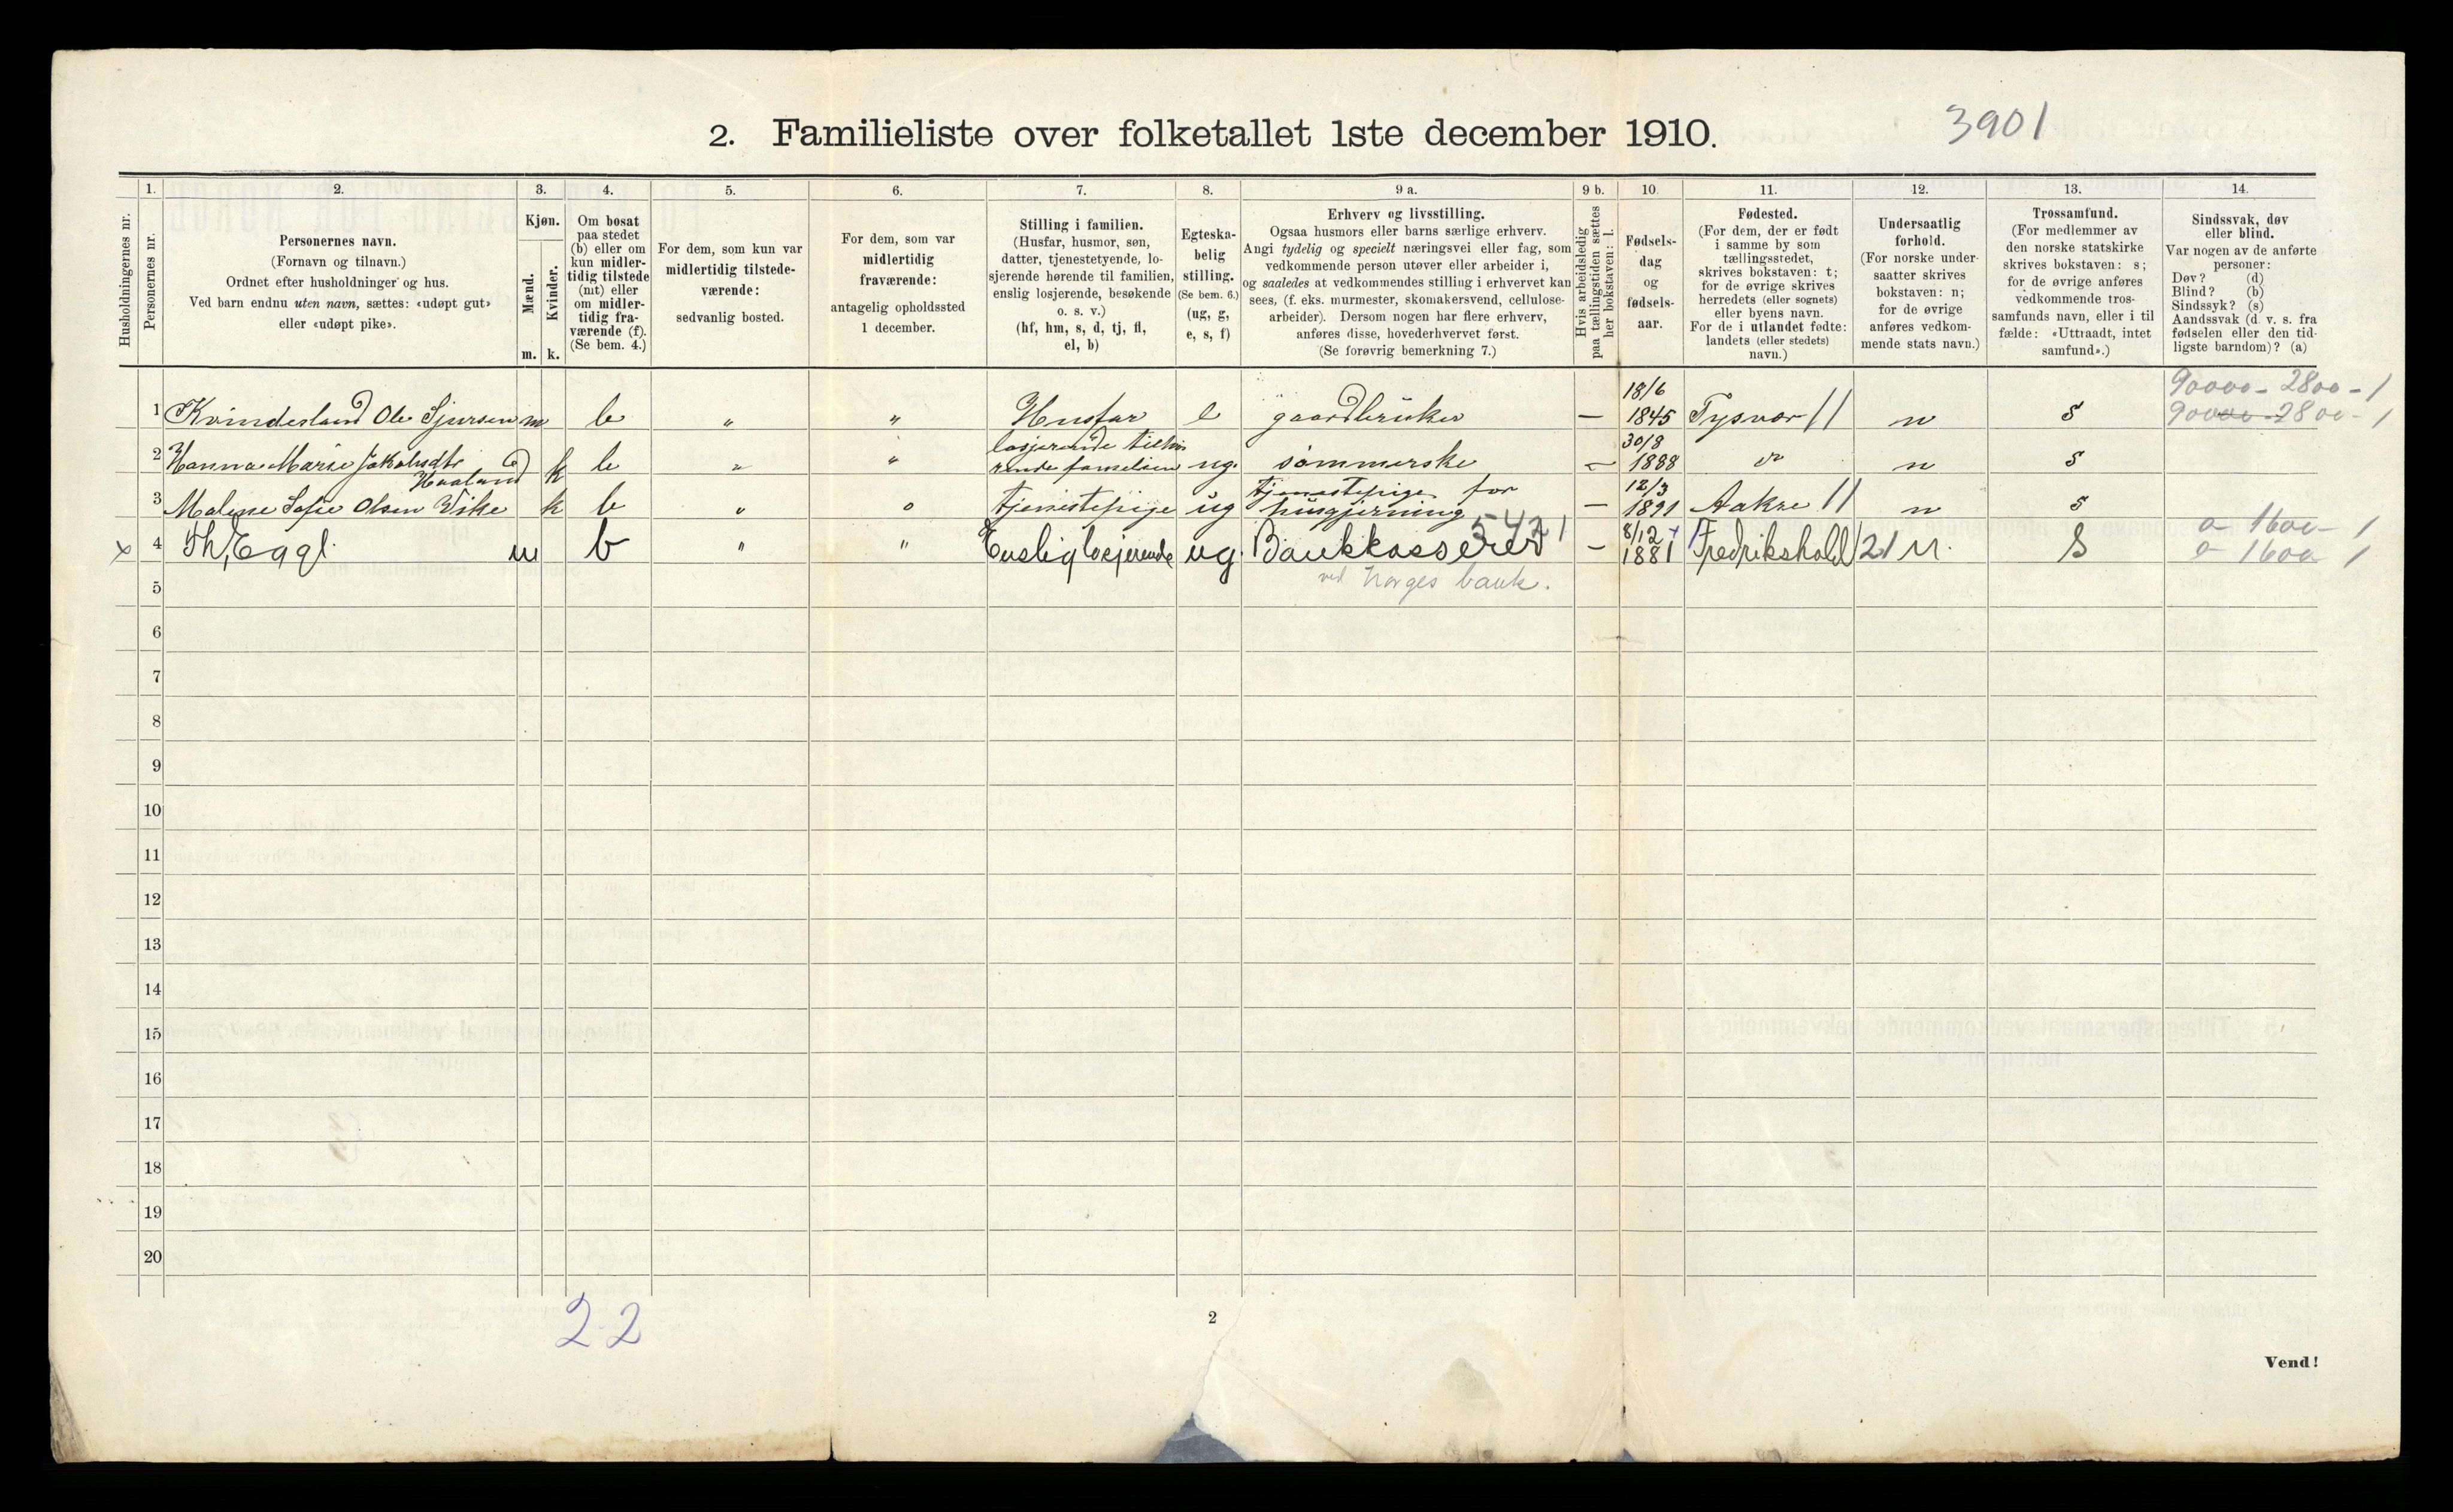 3901
2. Familieliste over folketallet 1ste december 1910.
Husholdningernes nr.
1.
Personernes nr.
2.
Personernes navn.
(Fornavn og tilnavn.)
Ordnet efter husholdninger og hus.
Ved barn endnu uten navn, sættes: «udøpt gut»
eller «udøpt pike».
3.
Kjøn.
Mænd.
Kvinder.
m. k.
4.
Om bosat
paa stedet
(b) eller om
kun midler-
tidig tilstede
(mt) eller
om midler-
tidig fra-
værende (f).
(Se bem. 4.)
5.
For dem, som kun var
midlertidig tilstede-
værende:
sedvanlig bosted.
6.
For dem, som var
midlertidig
fraværende:
antagelig opholdssted
1 december.
7.
Stilling i familien.
(Husfar, husmor, søn,
datter, tjenestetyende, lo-
sjerende hørende til familien,
enslig losjerende, besøkende
o. s. v.)
(hf, hm, s, d, tj, fl,
el, b)
8.
Egteska-
belig
stilling.
(Se bem. 6.)
(ug, g,
e, s, f)
9 a.
Erhverv og livsstilling.
Ogsaa husmors eller barns særlige erhverv.
Angi tydelig og specielt næringsvei eller fag, som
vedkommende person utøver eller arbeider i,
og saaledes at vedkommendes stilling i erhvervet kan
sees, (f. eks. murmester, skomakersvend, cellulose-
arbeider). Dersom nogen har flere erhverv,
anføres disse, hovederhvervet først.
(Se forøvrig bemerkning 7.)
9 b.
Hvis arbeidsledig
paa tællingstiden sættes
her bokstaven: l.
10.
Fødsels-
dag
og
fødsels-
aar.
11.
Fødested.
(For dem, der er født
i samme by som
tællingsstedet,
skrives bokstaven: t;
for de øvrige skrives
herredets (eller sognets)
eller byens navn.
For de i utlandet fødte:
landets (eller stedets)
navn.)
12.
Undersaatlig
forhold.
(For norske under-
saatter skrives
bokstaven: n;
for de øvrige
anføres vedkom-
mende stats navn.)
13.
Trossamfund.
(For medlemmer av
den norske statskirke
skrives bokstaven: s;
for de øvrige anføres
vedkommende tros-
samfunds navn, eller i til
fælde: «Uttraadt, intet
samfund».)
14.
Sindssvak, døv
eller blind.
Var nogen av de anførte
personer:
Døv? (d)
Blind? (b)
Sindssyk? (s)
Aandssvak (d. v. s. fra
fødselen eller den tid-
ligste barndom)? (a)
18/6 90000 - 2800 - 1
1 Kvindesland Ole Sjursen m b " " Husfar e gaardbruker - 1845 Tysvær // n s 90000 - 2800 - 1
losjerende tilhø 30/8
2 Hanna Marie Jakobsdtr k b " " rende familien ug. sømmerske - 1888 n s
Haaland
tjenestepige for 12/3
3 Malene Sofie Olsen Vike k b " " tjenestepige ug husgjerning - 1891 Aakre // n s
5421 8/12 1600 - 1
x 4 Th. Eggl. m b " " Enslig losjerende ug. Bankkasserer - 1881 Fredrikshald 21 n. s 1600 1
ved Norges bank.
5
6
7
8
9
10
11
12
13
14
15
16
17
18
19
20
2 2
2
Vend!